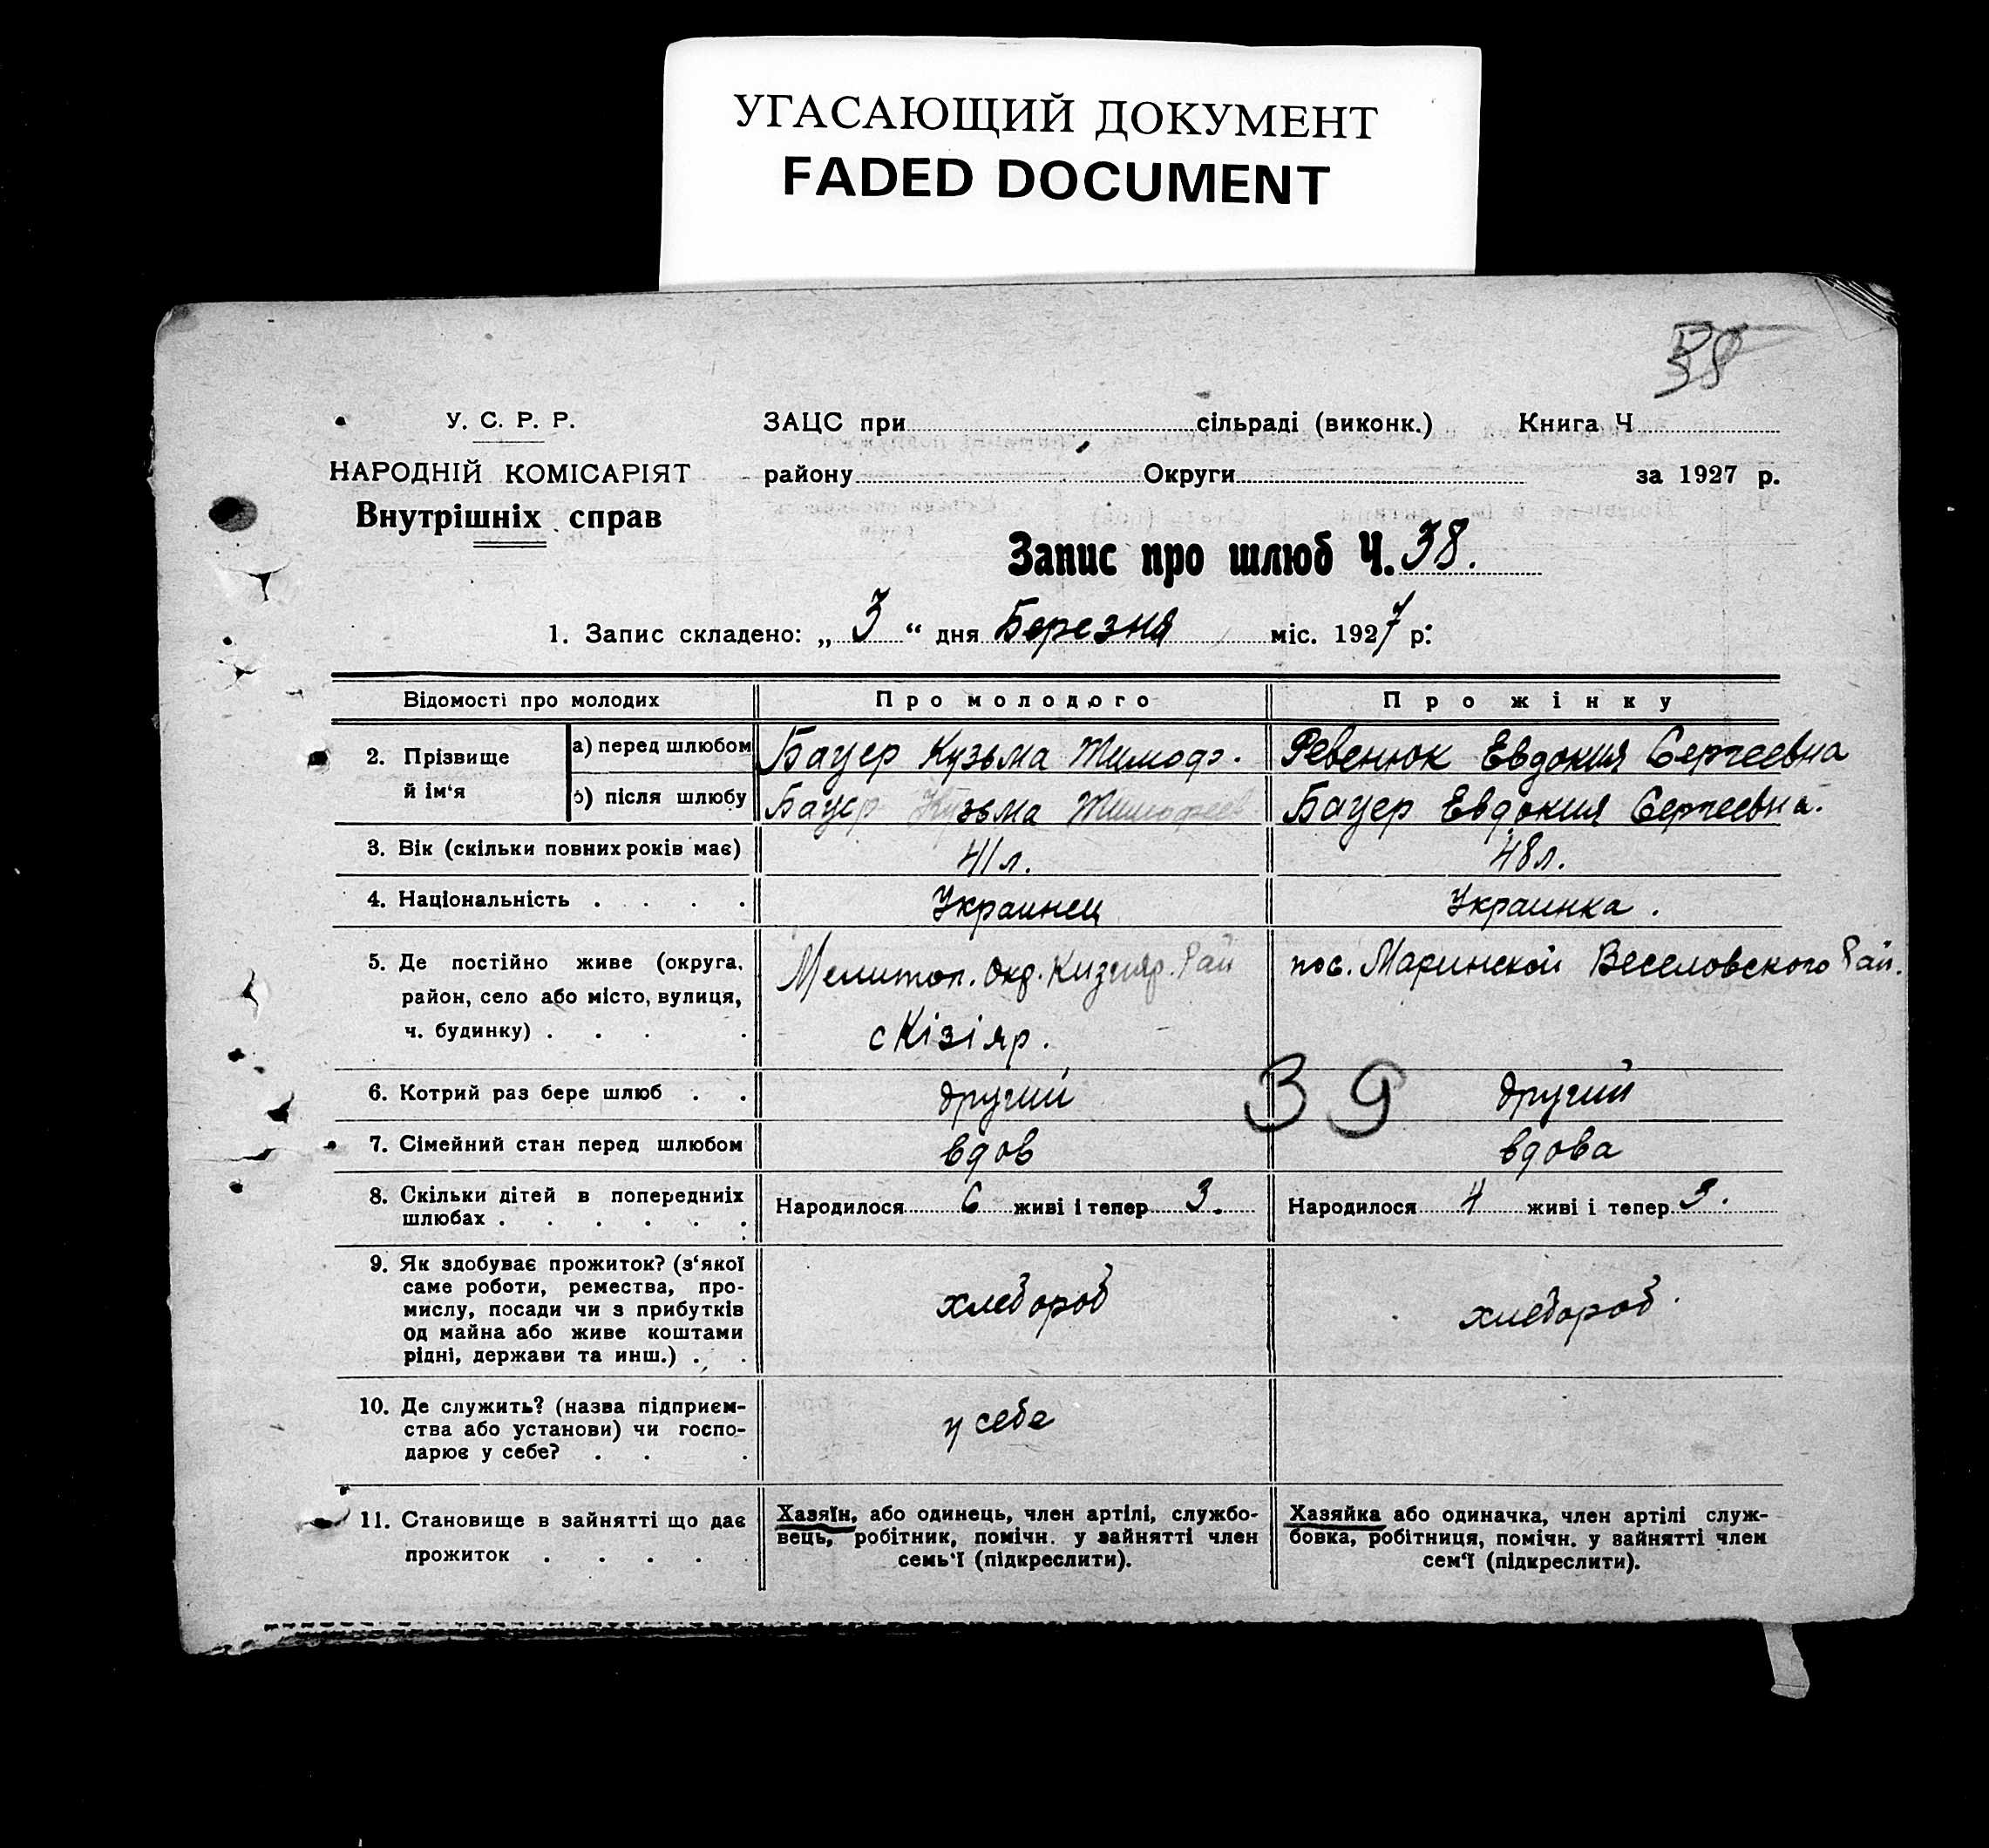 УГАСАЮЩИЙ ДОКУМЕНТ
FADED DOCUMENT
38
У. С. Р. Р.
НАРОДНІЙ КОМІСАРІЯТ
Внутрішніх справ
ЗАЦС при сільраді (виконк.) Книга Ч
району Округи за 1927 р.
Запис про шлюб Ч. 38.
1. Запис складено: „ 3 “ дня Березня міс. 1927 р.
Відомості про молодих Про молодого Про жінку
2. Прізвище й ім‘я а) перед шлюбом Бауер Кузьма Тимофэ. Ревенюк Евдокия Сергеевна
б) після шлюбу Бауер Кузьма Тимофеев Бауер Евдокия Сергеевна.
3. Вік (скільки повних років має) 41 л. 48 л.
4. Національність . . . . Украинец Украинка .
5. Де постійно живе (округа, район, село або місто, вулиця, ч. будинку) . . . . Мелитоп. Окр. Кизияр. Рай с Кізіяр. пос. Маринской Веселовского Рай.
6. Котрий раз бере шлюб . . другий другий
39
7. Сімейний стан перед шлюбом вдов вдова
8. Скільки дітей в попередниіх шлюбах . . . . . . Народилося 6 живі і тепер 3. Народилося 4 живі і тепер 3.
9. Як здобуває прожиток? (з‘якої
саме роботи, ремества, про-
мислу, посади чи з прибутків
од майна або живе коштами
рідні, держави та инш.) . .
хлебороб хлебороб.
10. Де служить? (назва підприєм-
ства або установи) чи госпо-
дарює у себе? . . .
у себе
11. Становище в зайнятті що дає
прожиток . . . . .
Хазяїн, або одинець, член артілі, службо-
вець, робітник, помічн. у зайнятті член
семь‘ї (підкреслити).
Хазяйка або одиначка, член артілі служ-
бовка, робітниця, помічн. у зайнятті член
сем‘ї (підкреслити).